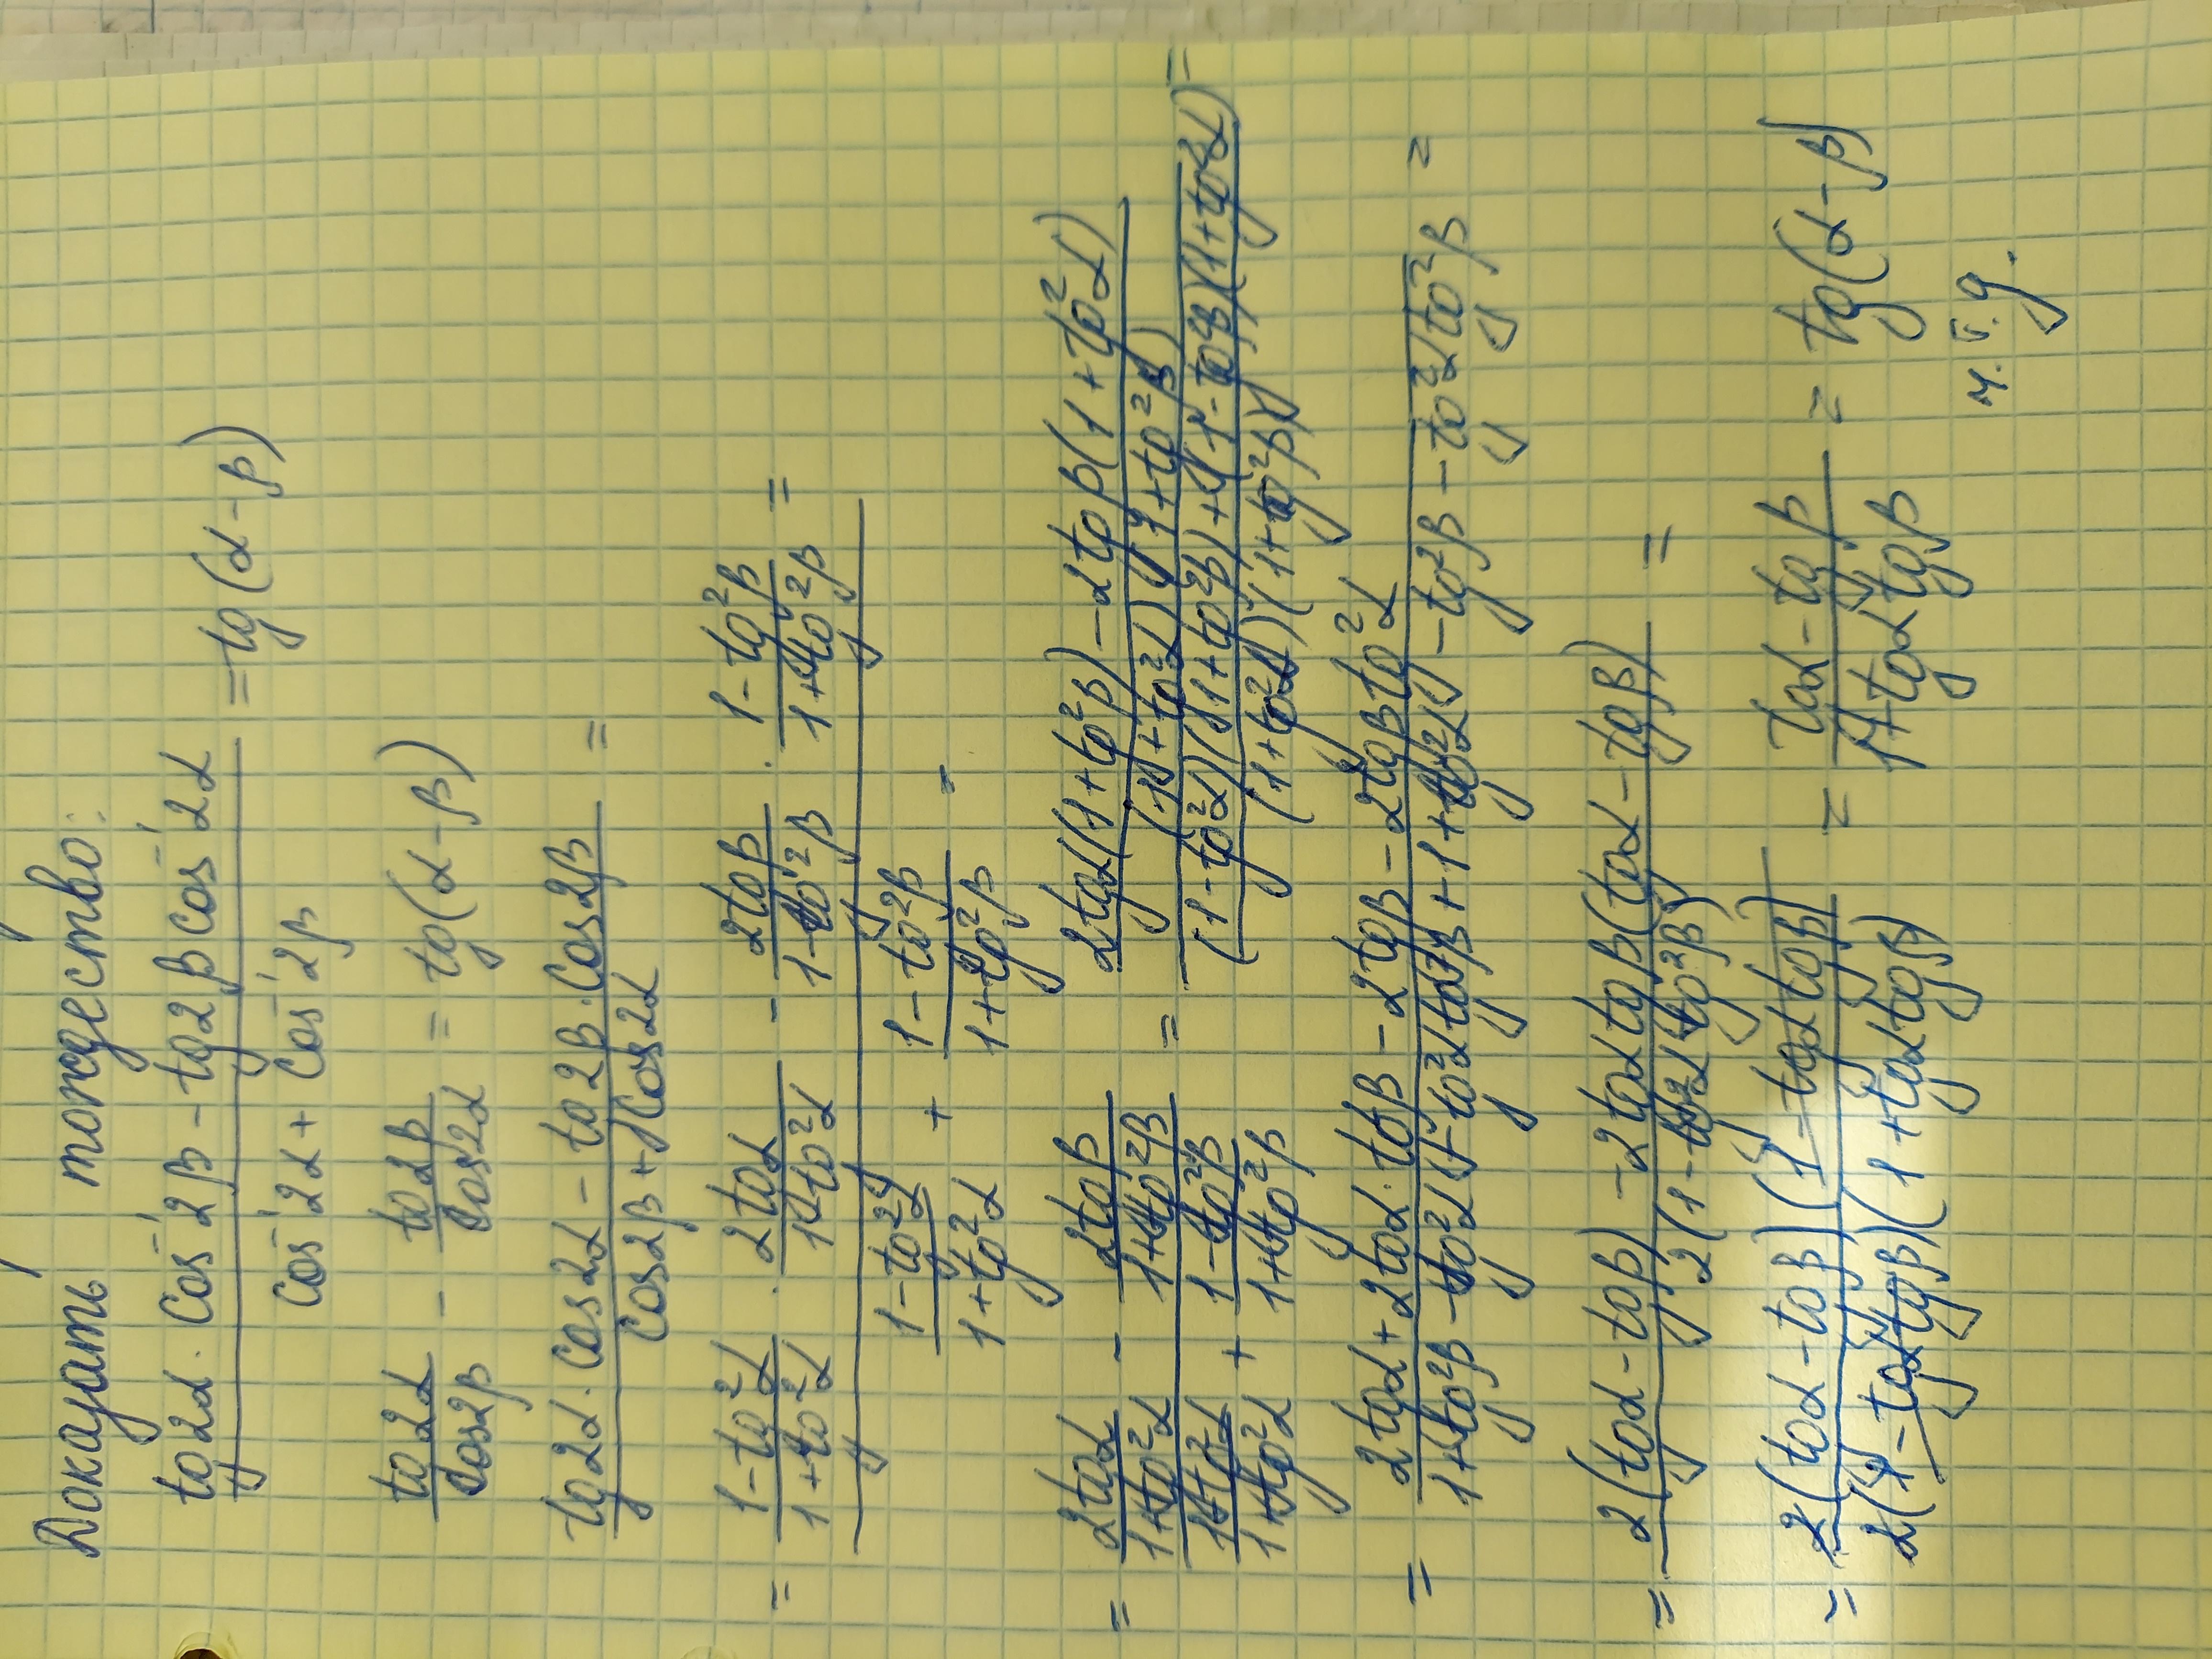 Доказать тождество:
tg2α · cos⁻¹2β - tg2β cos⁻¹2α / cos⁻¹2α + cos⁻¹2β = tg(α-β)
tg2α / cos2β - tg2β / cos2α = tg(α-β)
tg2α · cos2α - tg2β · cos2β / cos2β + cos2α =
= 1-tg²α / 1+tg²α · 2tgα / 1-tg²α - 2tgβ / 1-tg²β · 1-tg²β / 1+tg²β =
1-tg²α / 1+tg²α + 1-tg²β / 1+tg²β =
= 2tgα / 1+tg²α - 2tgβ / 1+tg²β = 2tgα(1+tg²β) - 2tgβ(1+tg²α)
(1+tg²α)(1+tg²β)
1-tg²α / 1+tg²α + 1-tg²β / 1+tg²β (1-tg²α)(1+tg²β)+(1-tg²β)(1+tg²α) =
(1+tg²α)(1+tg²β)
= 2tgα + 2tgα · tg²β - 2tgβ - 2tgβtg²α =
1+tg²β - tg²α - tg²αtg²β + 1 + tg²α - tg²β - tg²αtg²β
= 2(tgα - tgβ) - 2tgαtgβ(tgα - tgβ) =
2(1 - tg²αtg²β)
= 2(tgα - tgβ)(1 - tgαtgβ) = tgα - tgβ = tg(α-β)
2(1 - tgαtgβ)(1 + tgαtgβ) 1+tgαtgβ
ч.т.д.